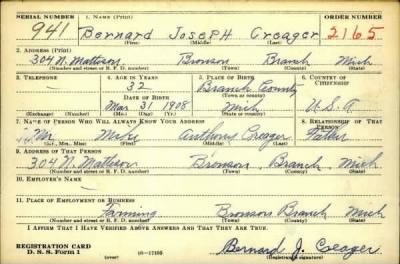 SERIAL NUMBER 1. NAME (Print) ORDER NUMBER
941 Bernard Joseph Creager 2165
(First) (Middle) (Last)
2. ADDRESS (Print)
304 N. Mattison Bronson Branch Mich
(Number and street or R. F. D. number) (Town) (County) (State)
3. TELEPHONE 4. AGE IN YEARS 5. PLACE OF BIRTH 6. COUNTRY OF CITIZENSHIP
— 32 Branch County
DATE OF BIRTH (Town or county)
Mar. 31 1908 Mich U.S.A
(Exchange) (Number) (Mo.) (Day) (Yr.) (State or country)
7. NAME OF PERSON WHO WILL ALWAYS KNOW YOUR ADDRESS 8. RELATIONSHIP OF THAT PERSON
Mr. Anthony Creager Father
(Mr., Mrs., Miss) (First) (Middle) (Last)
9. ADDRESS OF THAT PERSON
304 N. Mattison Bronson, Branch, Mich
(Number and street or R. F. D. number) (Town) (County) (State)
10. EMPLOYER'S NAME
—
11. PLACE OF EMPLOYMENT OR BUSINESS
Farming Bronson Branch Mich
(Number and street or R. F. D. number) (Town) (County) (State)
I AFFIRM THAT I HAVE VERIFIED ABOVE ANSWERS AND THAT THEY ARE TRUE.
REGISTRATION CARD
D. S. S. Form 1 16—17105 Bernard J. Creager